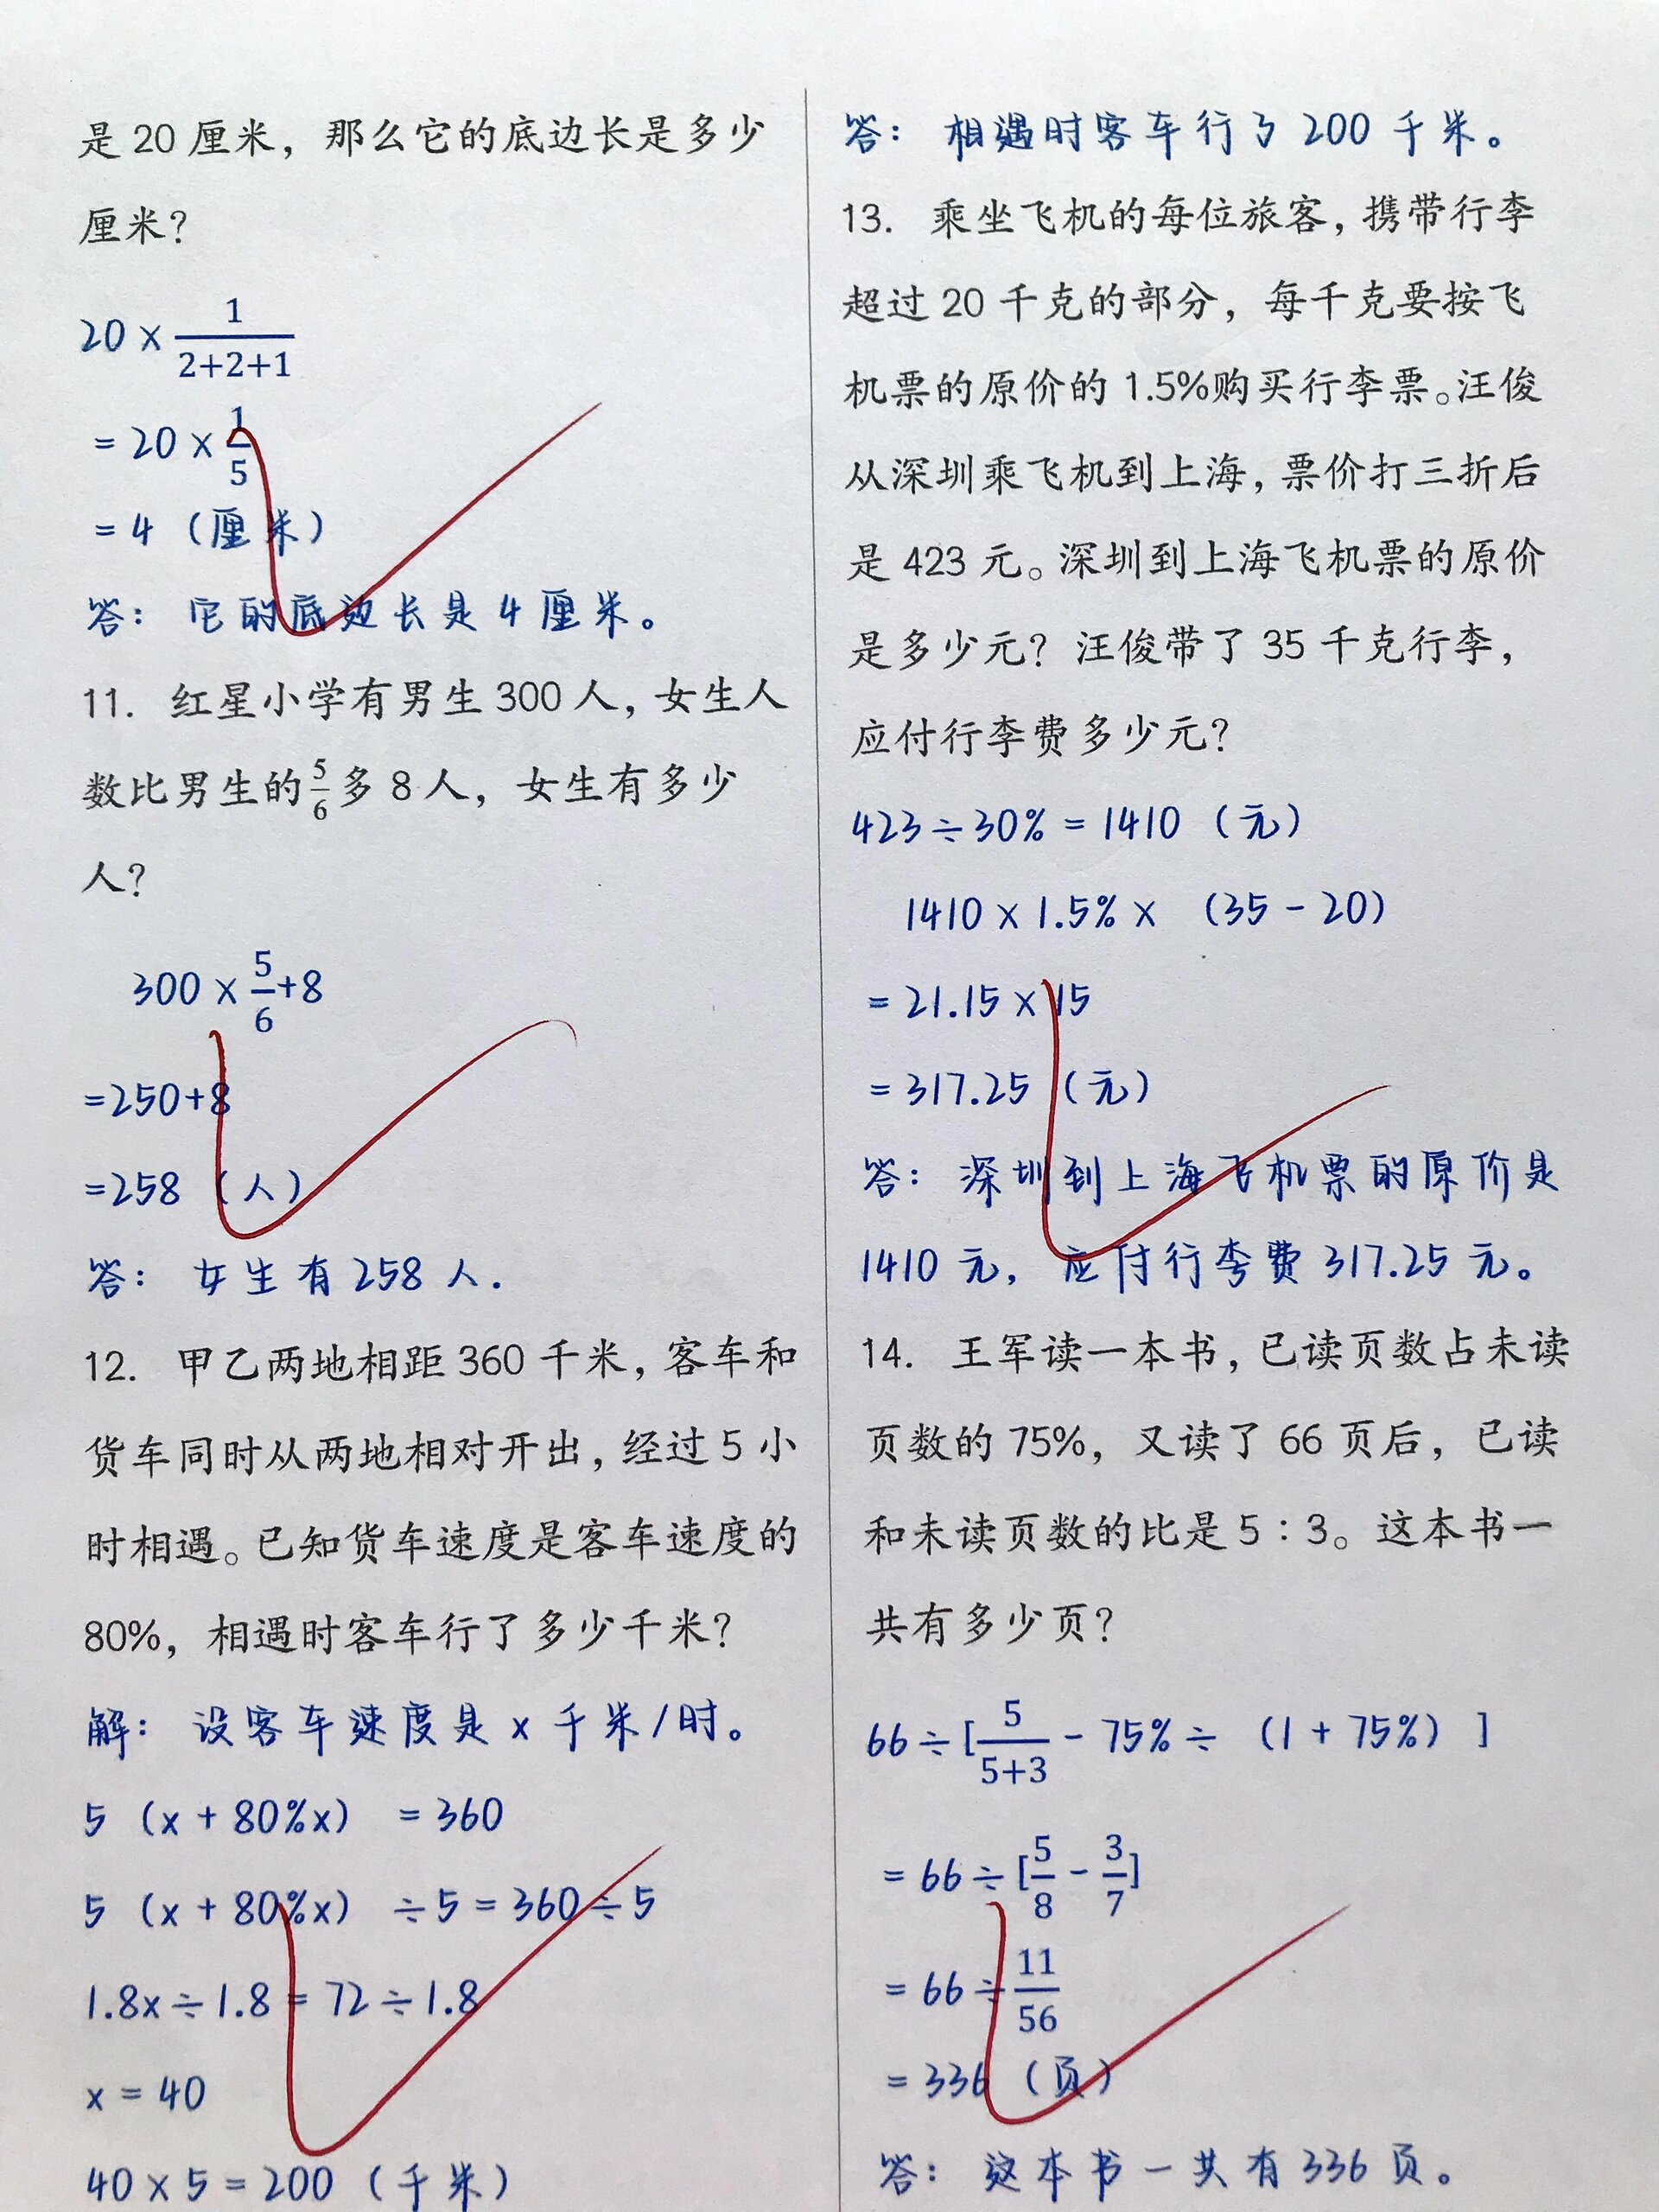 是 20 厘米，那么它的底边长是多少
厘米？
20 × 1/(2+2+1)
= 20 × 1/5
= 4 （厘米）
答： 它的底边长是 4 厘米。
11. 红星小学有男生 300 人，女生人
数比男生的 5/6 多 8 人，女生有多少
人？
300 × 5/6 +8
=250+8
=258 （人）
答： 女生有 258 人.
12. 甲乙两地相距 360 千米，客车和
货车同时从两地相对开出，经过 5 小
时相遇。已知货车速度是客车速度的
80%，相遇时客车行了多少千米？
解： 设客车速度是 x 千米/时。
5 （x + 80%x） = 360
5 （x + 80%x） ÷ 5 = 360 ÷ 5
1.8x ÷ 1.8 = 72 ÷ 1.8
x = 40
40 × 5 = 200 （千米）
答： 相遇时客车行了 200 千米。
13. 乘坐飞机的每位旅客，携带行李
超过 20 千克的部分，每千克要按飞
机票的原价的 1.5%购买行李票。汪俊
从深圳乘飞机到上海，票价打三折后
是 423 元。深圳到上海飞机票的原价
是多少元？汪俊带了 35 千克行李，
应付行李费多少元？
423 ÷ 30% = 1410 （元）
1410 × 1.5% × （35 - 20）
= 21.15 × 15
= 317.25 （元）
答： 深圳到上海飞机票的原价是
1410 元， 应付行李费 317.25 元。
14. 王军读一本书，已读页数占未读
页数的 75%，又读了 66 页后，已读
和未读页数的比是 5：3。这本书一
共有多少页？
66 ÷ [5/(5+3) - 75% ÷ （1 + 75%）]
= 66 ÷ [5/8 - 3/7]
= 66 ÷ 11/56
= 336 （页）
答： 这本书一共有 336 页。